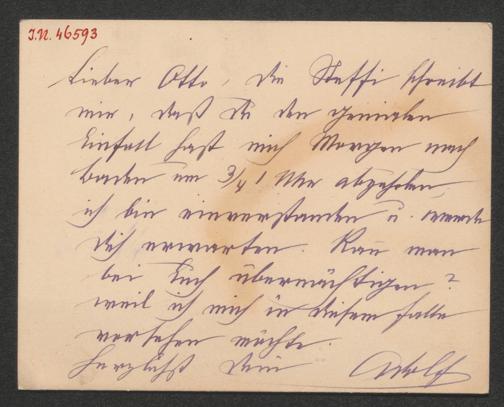 J.N. 46593
Lieber Otto, die Steffi schreibt
mir, daß Du den genialen
Einfall hast mich Morgen nach
Baden um 3/4 1 Uhr abzuholen,
ich bin einverstanden u. werde
Dich erwarten. Kan̄ man
bei Euch übernächtigen?
weil ich mich in diesem Falle
vorsehen möchte.
Herzlichst Dein Adolf